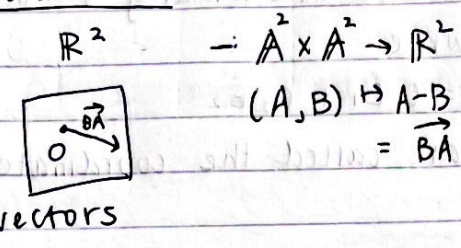 ℝ² −: 𝔸² × 𝔸² → ℝ²
(A, B) ↦ A−B
= \overrightarrow{BA}
\overrightarrow{BA}
O
vectors